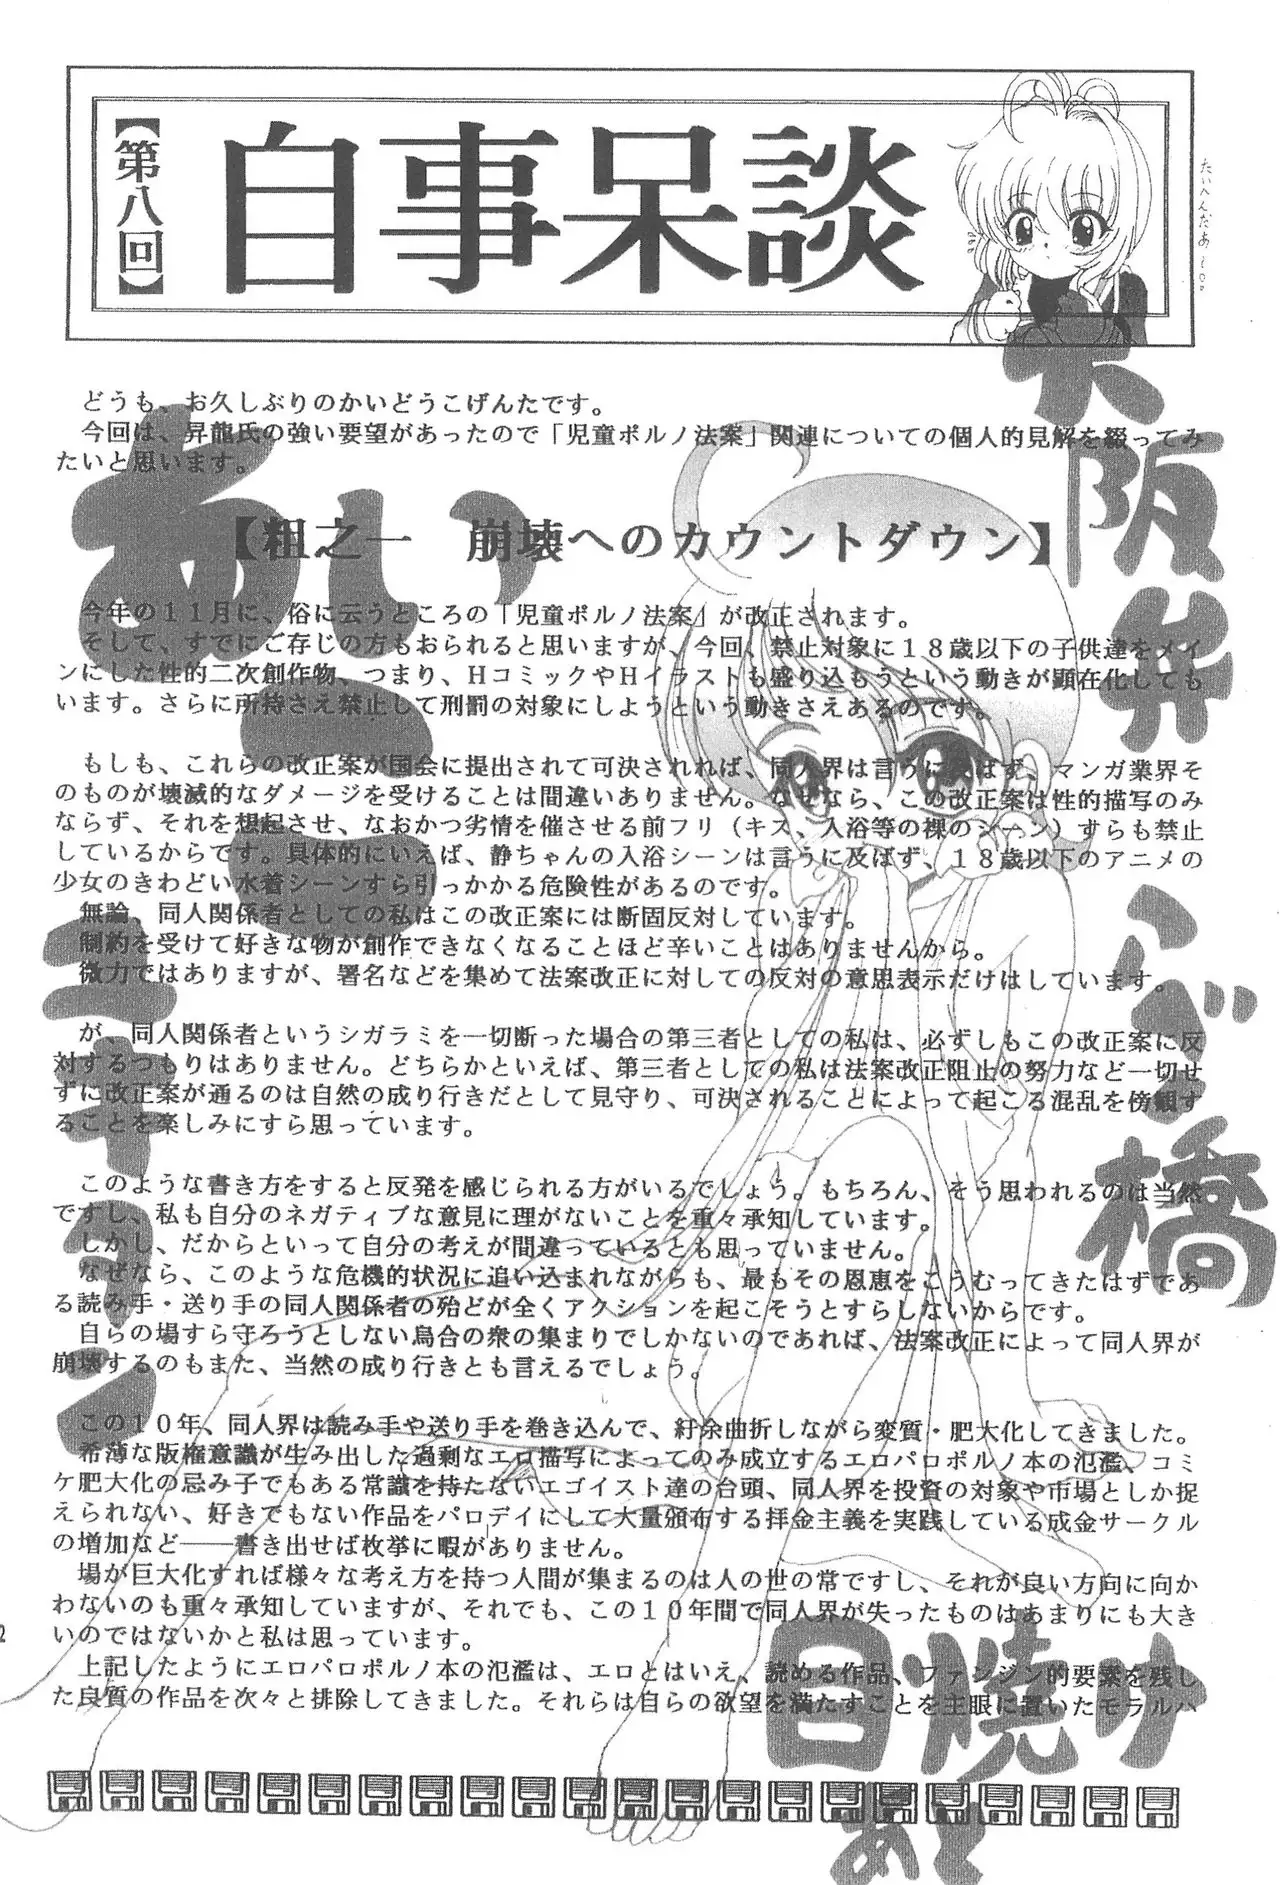 【第八回】
自事呆談
たいへんだぁ
どうも、お久しぶりのかいどうこげんたです。
今回は、昇龍氏の強い要望があったので「児童ポルノ法案」関連についての個人的見解を綴ってみ
たいと思います。
【粗之一　崩壊へのカウントダウン】
今年の１１月に、俗に云うところの「児童ポルノ法案」が改正されます。
そして、すでにご存じの方もおられると思いますが、今回、禁止対象に１８歳以下の子供達をメイ
ンにした性的二次創作物、つまり、ＨコミックやＨイラストも盛り込もうという動きが顕在化しても
います。さらに所持さえ禁止して刑罰の対象にしようという動きさえあるのです。
もしも、これらの改正案が国会に提出されて可決されれば、同人界は言うに及ばず、マンガ業界そ
のものが壊滅的なダメージを受けることは間違いありません。なぜなら、この改正案は性的描写のみ
ならず、それを想起させ、なおかつ劣情を催させる前フリ（キス、入浴等の裸のシーン）すらも禁止
しているからです。具体的にいえば、静ちゃんの入浴シーンは言うに及ばず、１８歳以下のアニメの
少女のきわどい水着シーンすら引っかかる危険性があるのです。
無論、同人関係者としての私はこの改正案には断固反対しています。
制約を受けて好きな物が創作できなくなることほど辛いことはありませんから。
微力ではありますが、署名などを集めて法案改正に対しての反対の意思表示だけはしています。
が、同人関係者というシガラミを一切断った場合の第三者としての私は、必ずしもこの改正案に反
対するつもりはありません。どちらかといえば、第三者としての私は法案改正阻止の努力など一切せ
ずに改正案が通るのは自然の成り行きだとして見守り、可決されることによって起こる混乱を傍観す
ることを楽しみにすら思っています。
このような書き方をすると反発を感じられる方がいるでしょう。もちろん、そう思われるのは当然
ですし、私も自分のネガティブな意見に理がないことを重々承知しています。
しかし、だからといって自分の考えが間違っているとも思っていません。
なぜなら、このような危機的状況に追い込まれながらも、最もその恩恵をこうむってきたはずであ
る読み手・送り手の同人関係者の殆どが全くアクションを起こそうとすらしないからです。
自らの場すら守ろうとしない烏合の衆の集まりでしかないのであれば、法案改正によって同人界が
崩壊するのもまた、当然の成り行きとも言えるでしょう。
この１０年、同人界は読み手や送り手を巻き込んで、紆余曲折しながら変質・肥大化してきました。
希薄な版権意識が生み出した過剰なエロ描写によってのみ成立するエロパロポルノ本の氾濫、コミ
ケ肥大化の忌み子でもある常識を持たないエゴイスト達の台頭、同人界を投資の対象や市場としか捉
えられない、好きでもない作品をパロデイにして大量頒布する拝金主義を実践している成金サークル
の増加など――書き出せば枚挙に暇がありません。
場が巨大化すれば様々な考え方を持つ人間が集まるのは人の世の常ですし、それが良い方向に向か
わないのも重々承知していますが、それでも、この１０年間で同人界が失ったものはあまりにも大き
いのではないかと私は思っています。
上記したようにエロパロポルノ本の氾濫は、エロとはいえ、読める作品、ファンジン的要素を残し
た良質の作品を次々と排除してきました。それらは自らの欲望を満たすことを主眼に置いたモラルハ
大阪弁
橋
日焼け
あと
2